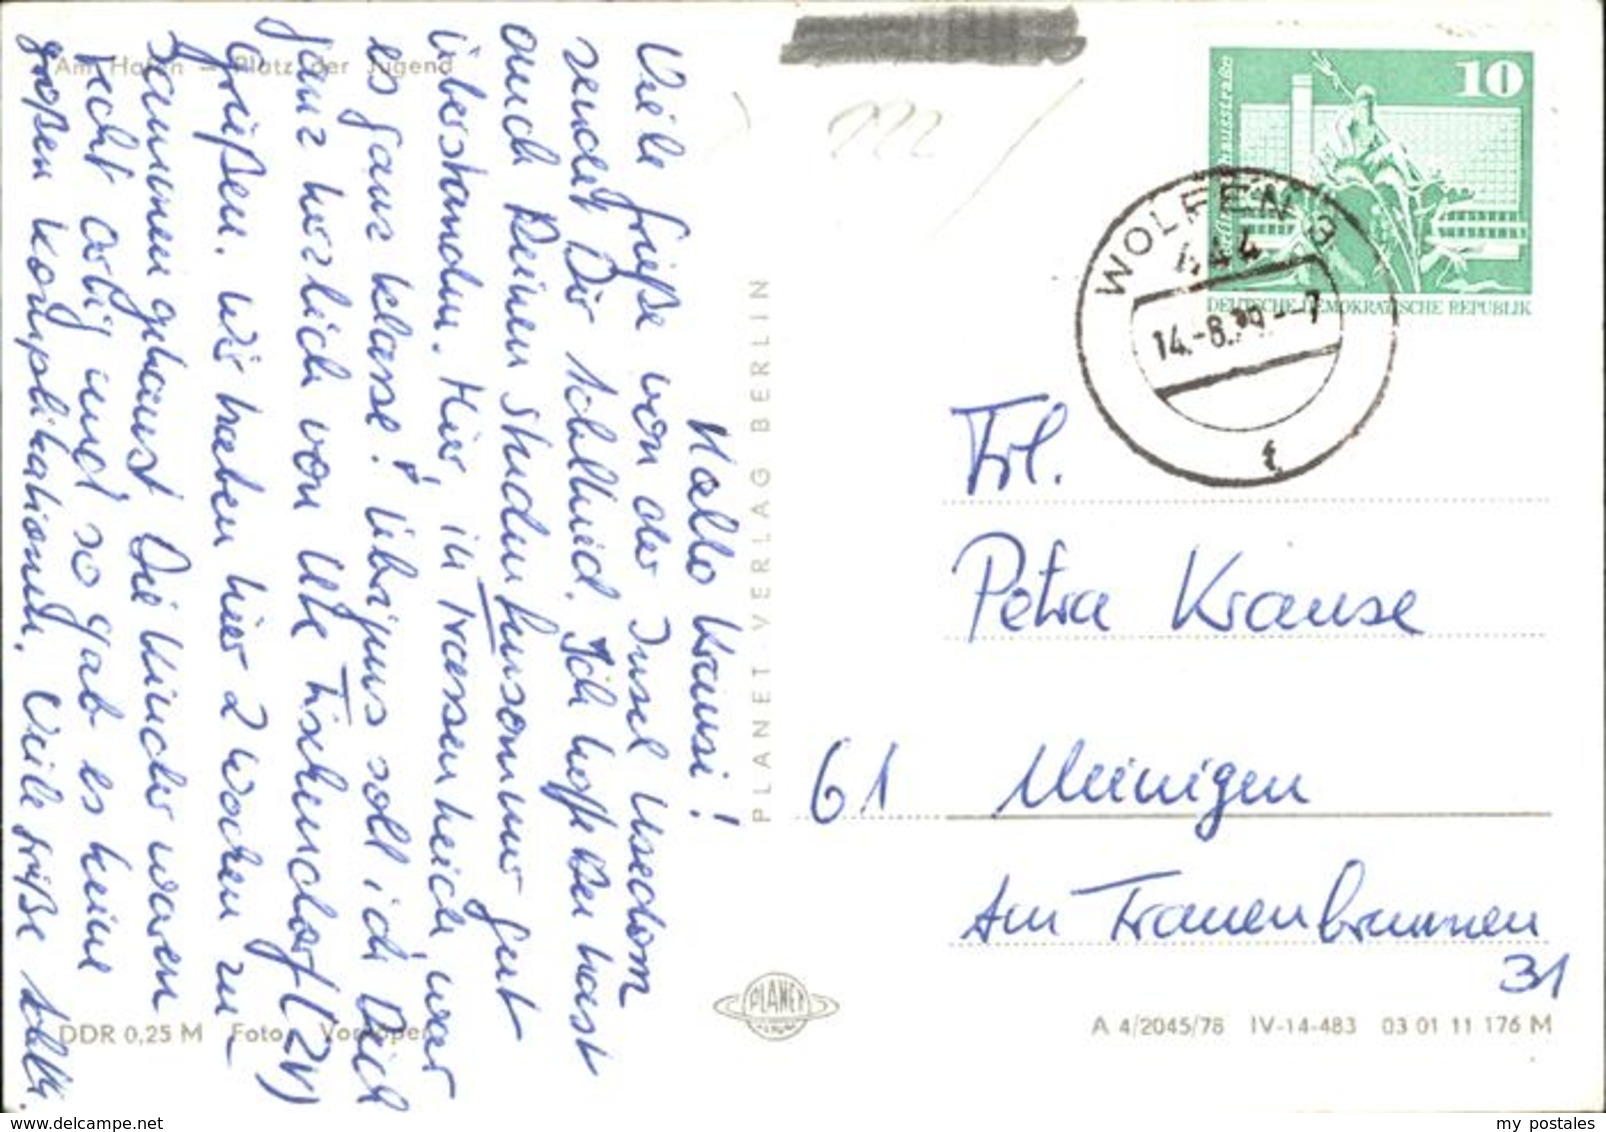 Hallo Krausi!
Viele Grüße von der Insel Usedom
sendet Dir Schlied. Ich hoffe Du hast
auch Deinen Studentensommer gut
überstanden. Hier, in Trassenheide, war
es ganz klasse! Übrigens soll ich Dich
ganz herzlich von Ute Fischendorf (24)
grüßen. Wir haben hier 2 Wochen zu-
sammen gehaust. Die Kinder waren
recht artig und so gab es keine
großen Komplikationen. Viele Grüße
Am Hafen – Platz der Jugend
DDR 0,25 M Foto
PLANET VERLAG BERLIN
PLANET
10
DEUTSCHE DEMOKRATISCHE REPUBLIK
WOLFEN 3
444
14.-8.79.--7
t
Frl.
Petra Krause
61 Meinigen
Am Frauenbrunnen
31
A 4/2045/78 IV-14-483 03 01 11 176 M
www.delcampe.net
my_postales